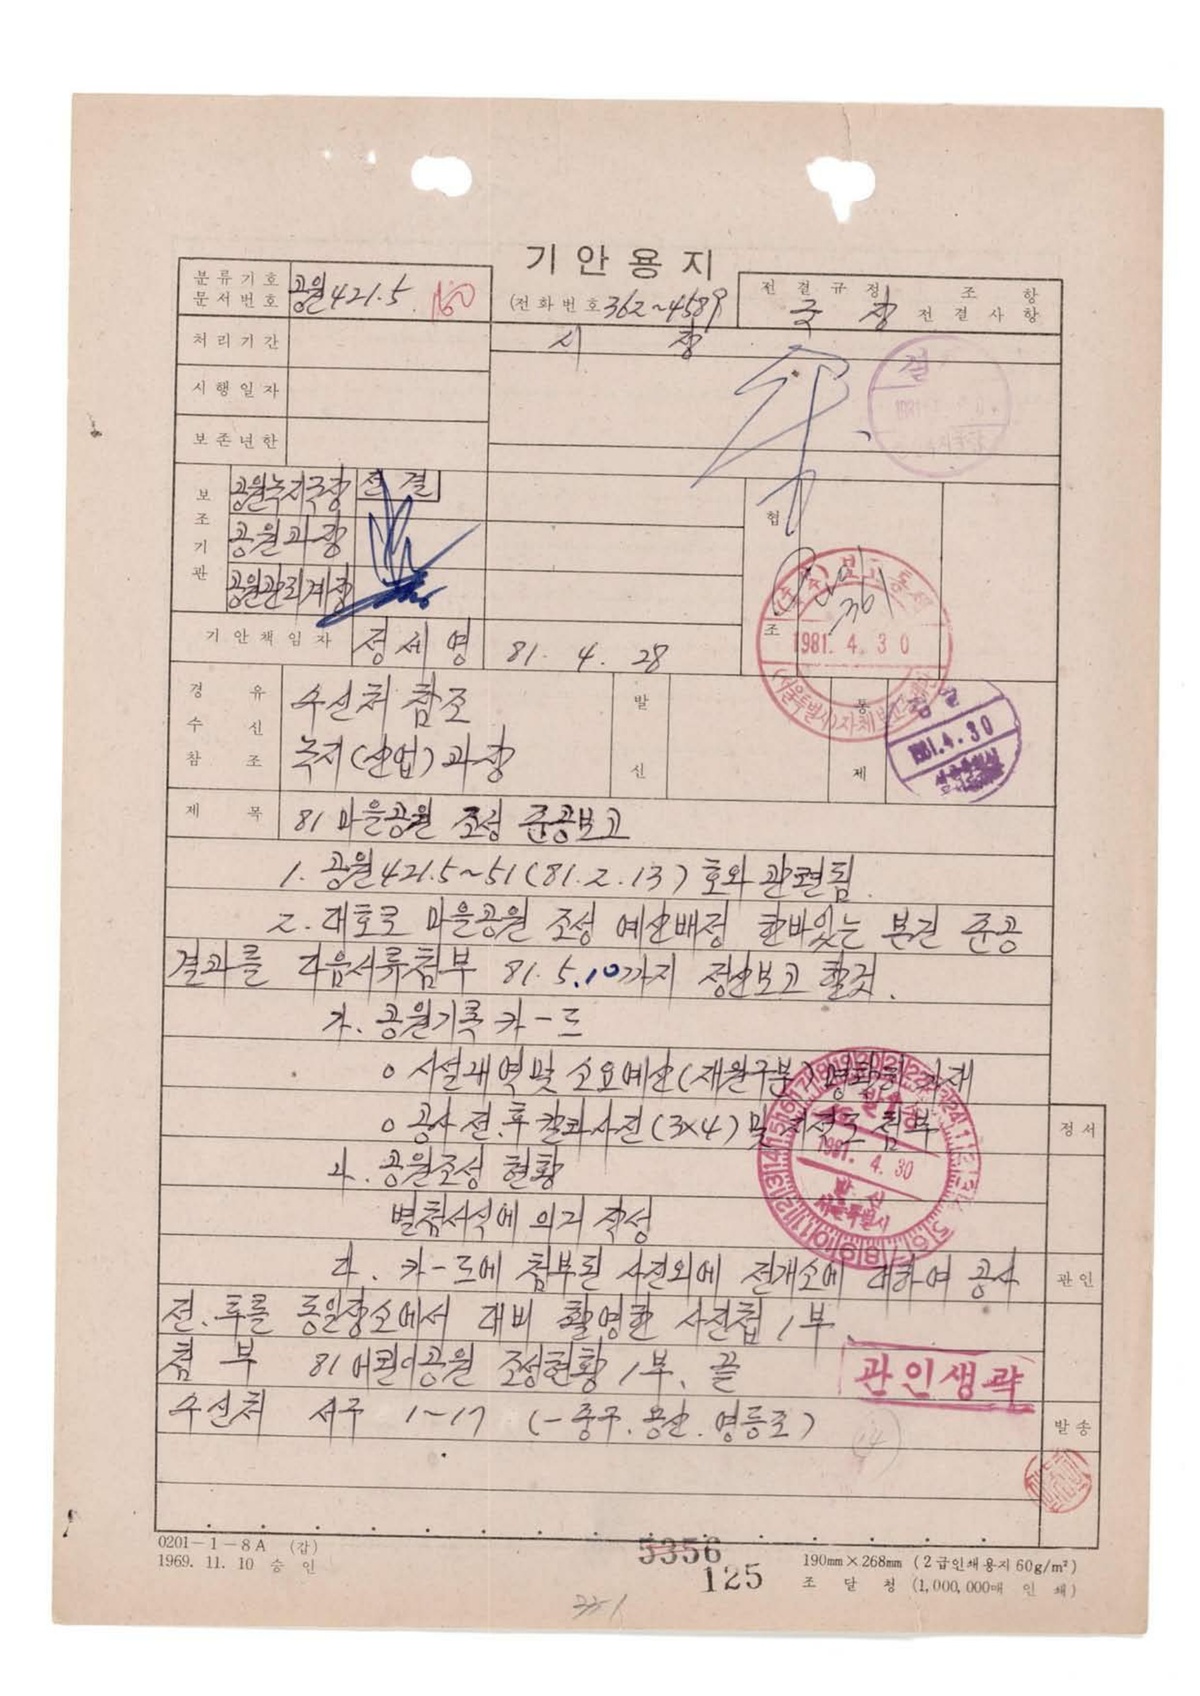 기안용지
분류기호
문서번호
공원421.5
160
(전화번호 362~4589
전결규정 조 항
국 장 전결사항
처리기간
시 장
시행일자
보존년한
1981
보조기관
공원녹지국장 전결
공원과장
공원관리계장
협조
보고통제
361
1981. 4. 30
(서울특별시)자체보고
기안책임자 정세영 81. 4. 28
경유
수신
참조
수신처 참조
녹지(산업)과장
발신
통제
1981. 4. 30
제 목 81 마을공원 조성 준공보고
1. 공원421.5~51(81.2.13)호와 관련됨.
2. 대호로 마을공원 조성 예산배정 한바있는 본건 준공
결과를 다음서류첨부 81.5.10까지 정산보고 할것.
가. 공원기록 카-드
o 시설내역및 소요예산(재원구분) 명확히 기재
o 공사 전.후 칼라사진(3×4) 및 지적도 첨부
나. 공원조성 현황
별첨서식에 의거 작성
다. 카-드에 첨부된 사진외에 전개소에 대하여 공사
전.후를 동일장소에서 대비 촬영한 사진첩 1부.
첨 부 81 어린이공원 조성현황 1부. 끝
수신처 서구 1~17 (-중구.용산.영등포)
(14)
1981. 4. 30
발신
서울특별시
관인생략
정서
관인
발송
0201-1-8A (갑)
1969. 11. 10 승인
5356
125
190mm×268mm (2급인쇄용지 60g/m²)
조 달 청 (1,000,000매 인 쇄)
351